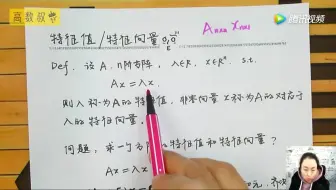 高数叔
腾讯视频
特征值/特征向量
A n×n X n×1
Def. 设 A, n阶方阵, λ∈R, x∈Rⁿ, s.t.
Ax = λx
则λ称为A的特征值, 非零向量x称为A的对应于
λ的特征向量.
问题, 求一个方 的特征值和特征向量?
Ax = λx